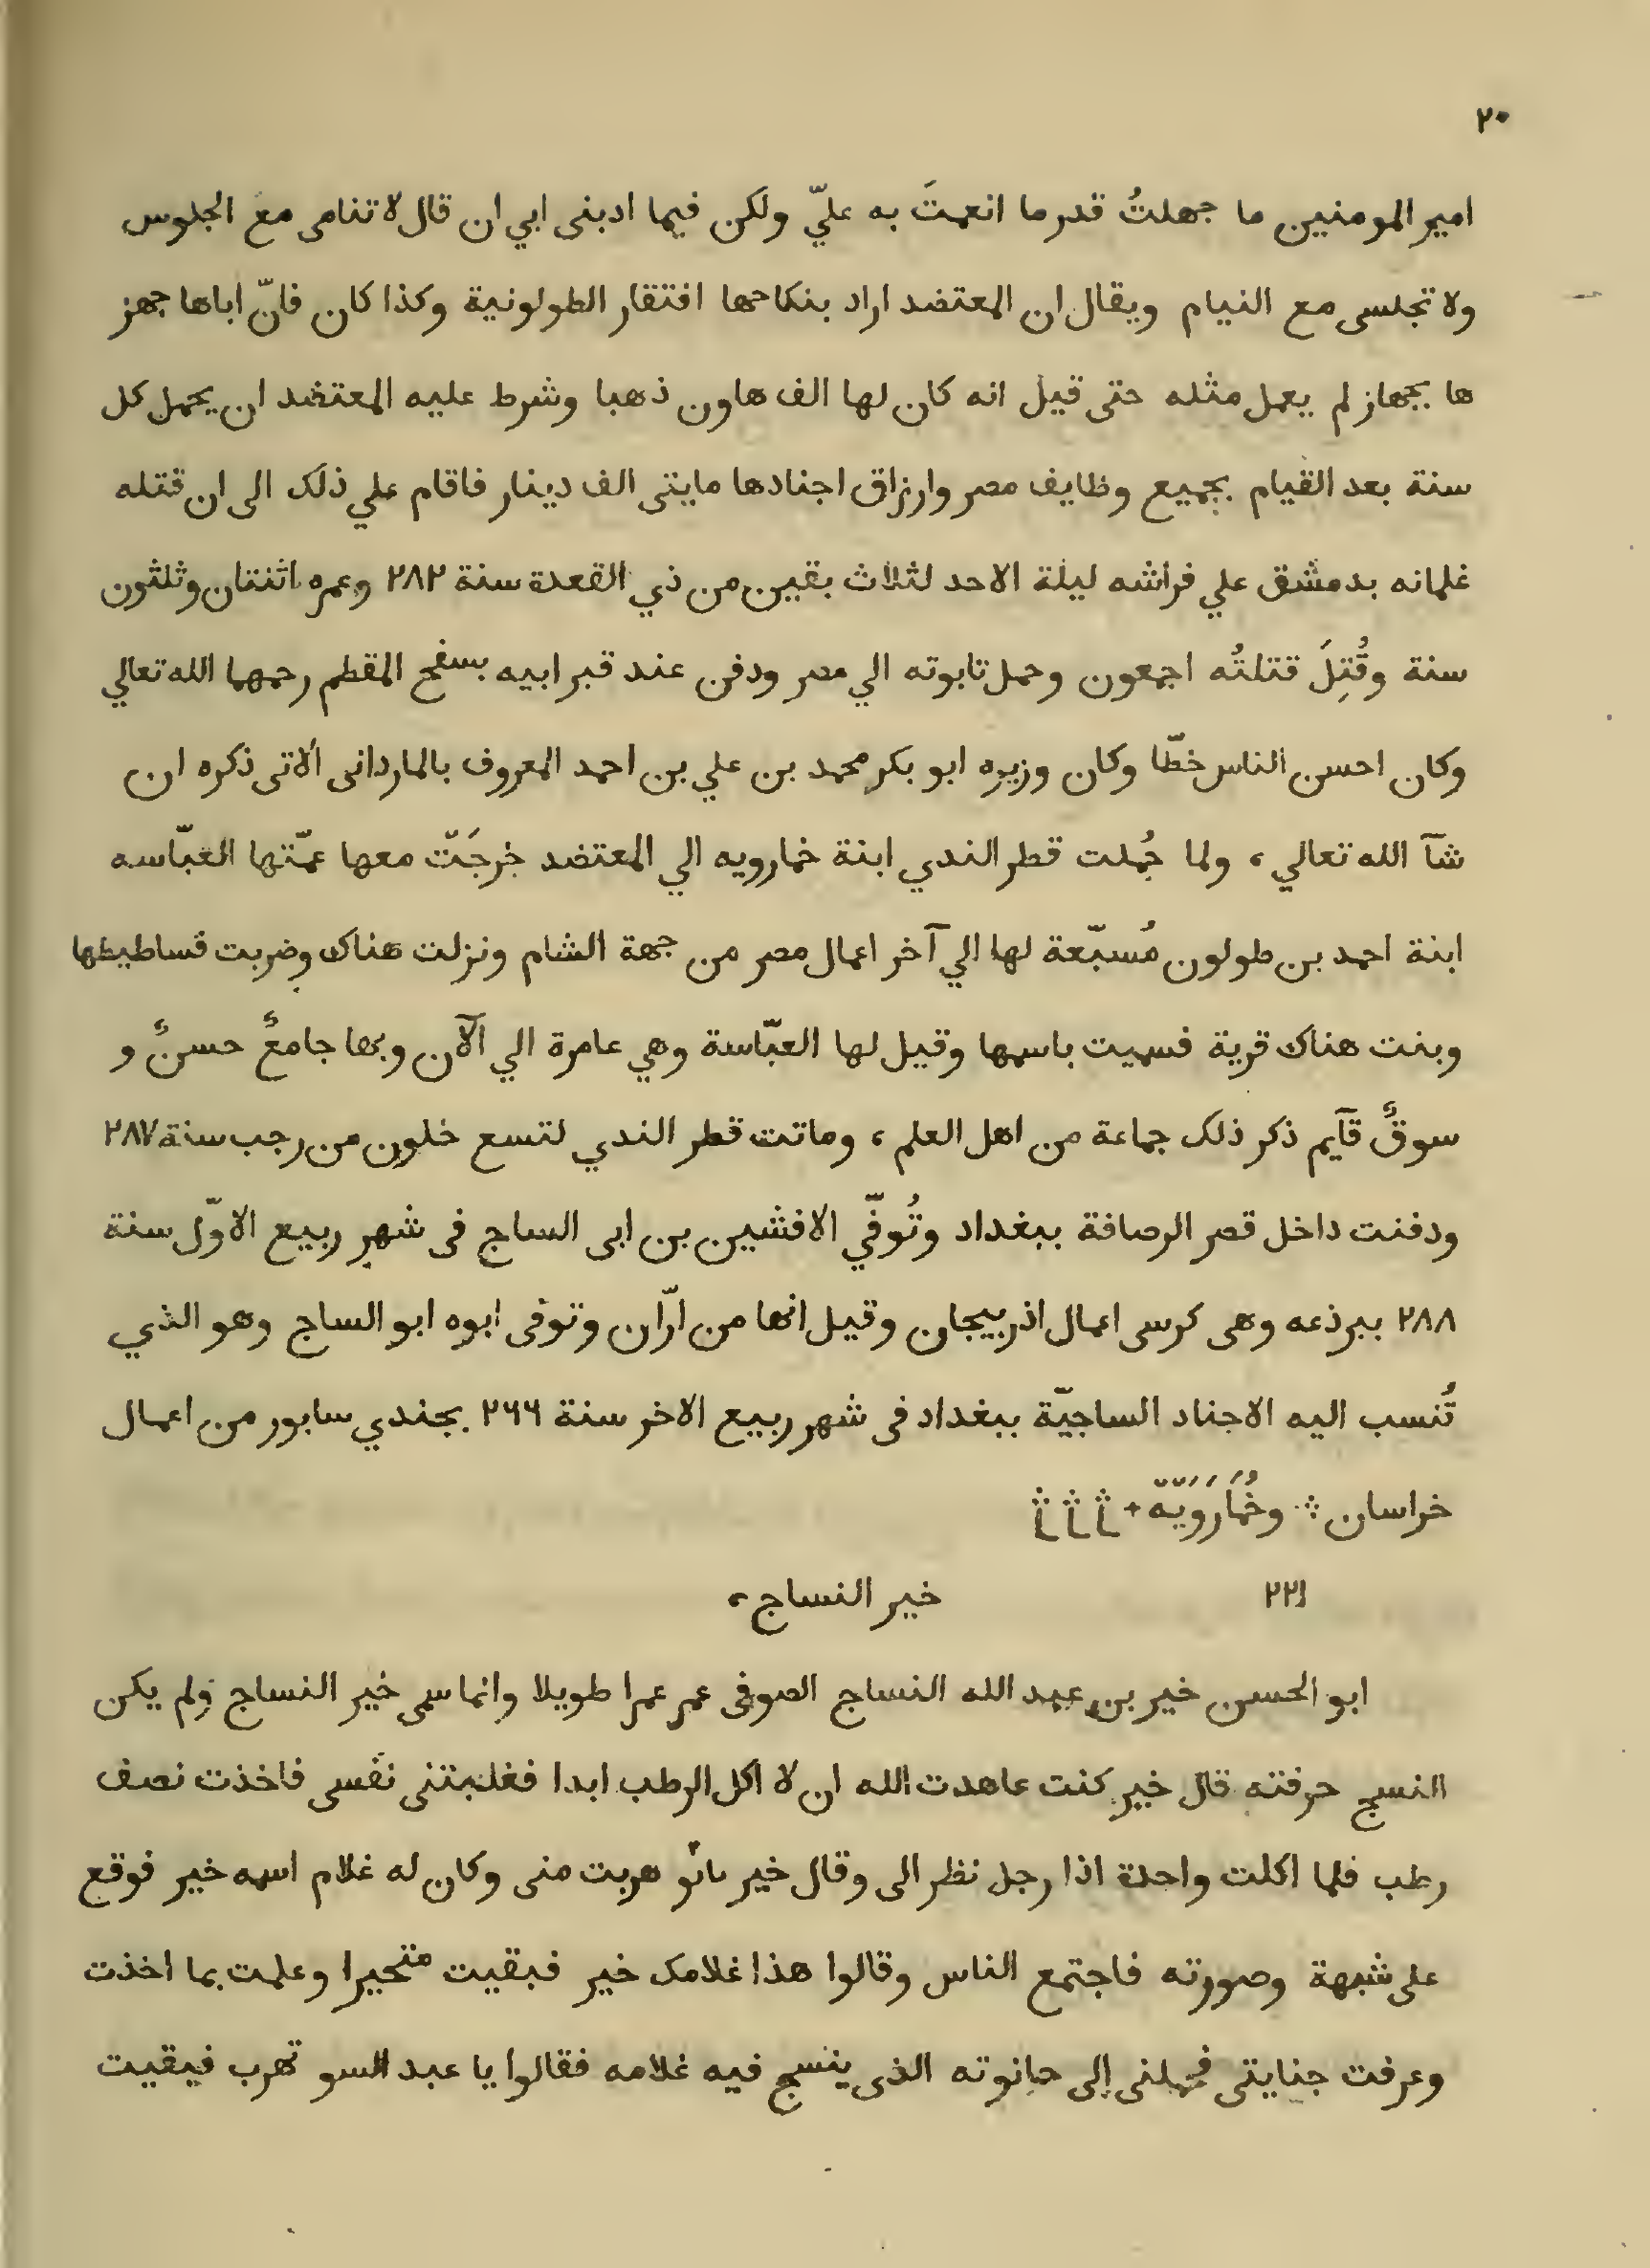 ٢٠
امير المومنين ما جهلتُ قدر ما انعمتَ به عليّ ولكن فيما ادبنى ابي ان قال لا تنامى مع الجلوس
ولا تجلسى مع النيام ويقال ان المعتضد اراد بنكاحها افتقار الطولونية وكذا كان فانّ اباها جهز
ها بجهاز لم يعمل مثله حتى قيل انه كان لها الف هاون ذهبا وشرط عليه المعتضد ان يحمل كل
سنة بعد القيام بجميع وظايف مصر وارزاق اجنادها مايتى الف دينار فاقام علي ذلك الى ان قتله
غلمانه بدمشق علي فراشه ليلة الاحد لثلاث بقين من ذي القعدة سنة ٢٨٢ وعمره اثنتان وثلثون
سنة وقُتِلَ قتلتُه اجمعون وحمل تابوته الي مصر ودفن عند قبر ابيه بسفح المقطم رحمهما الله تعالي
وكان احسن الناس خطّا وكان وزيره ابو بكر محمد بن علي بن احمد المعروف بالماردانى الاتى ذكره ان
شآ الله تعالي ، ولما حُملت قطر الندي ابنة خمارويه الي المعتضد خرجَتْ معها عمّتها العبّاسه
ابنة احمد بن طولون مُسبّعة لها الي آخر اعمال مصر من جهة الشام ونزلت هناك وضربت فساطيطها
وبنت هناك قرية فسميت باسمها وقيل لها العبّاسة وهي عامرة الي الآن وبها جامعٌ حسنٌ و
سوقٌ قآيم ذكر ذلك جماعة من اهل العلم ، وماتت قطر الندي لتسع خلون من رجب سنة ٢٨٧
ودفنت داخل قصر الرصافة ببغداد وتُوفّي الافشين بن ابى الساج فى شهر ربيع الاوّل سنة
٢٨٨ ببرذعه وهى كرسى اعمال اذربيجان وقيل انها من ارّان وتوفى ابوه ابو الساج وهو الذي
تُنسب اليه الاجناد الساجيّة ببغداد فى شهر ربيع الاخر سنة ٢٦٦ بجندي سابور من اعمال
خراسان ۞ وخُمَارَوَيْهْ
٢٢١ خير النساج ،
ابو الحسن خير بن عبد الله النساج الصوفى عمر عمرا طويلا وانما سمى خير النساج ولم يكن
النسج حرفته قال خير كنت عاهدت الله ان لا اكل الرطب ابدا فغلبتنى نفسى فاخذت نصف
رطب فلما اكلت واحدة اذا رجل نظر الى وقال خير هربت منى وكان له غلام اسمه خير فوقع
على شبهة وصورته فاجتمع الناس وقالوا هذا غلامك خير فبقيت متحيرا وعلمت بما اخذت
وعرفت جنايتى فحملنى إلى حانوته الذى ينسج فيه غلامه فقالوا يا عبد السو تهرب فيقيت